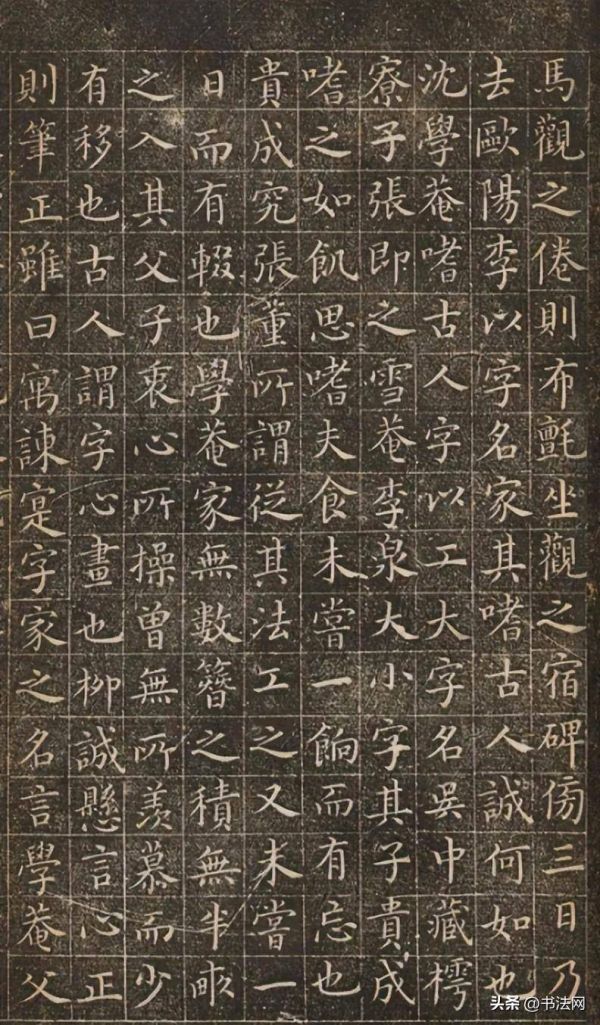 馬觀之倦則布氈坐觀之宿碑傍三日乃
去歐陽李以字名家其嗜古人誠何如也
沈學菴嗜古人字以工大字名吳中藏樗
寮子張即之雪菴李泉大小字其子貴成
嗜之如飢思嗜夫食未嘗一餉而有忘也
貴成究張董所謂從其法工之又未嘗一
日而有輟也學菴家無數簪之積無半畝
之入其父子衷心所操曾無所羨慕而少
有移也古人謂字心畫也柳誠懸言心正
則筆正雖曰寓諫寔字家之名言學菴父
头条 @书法网